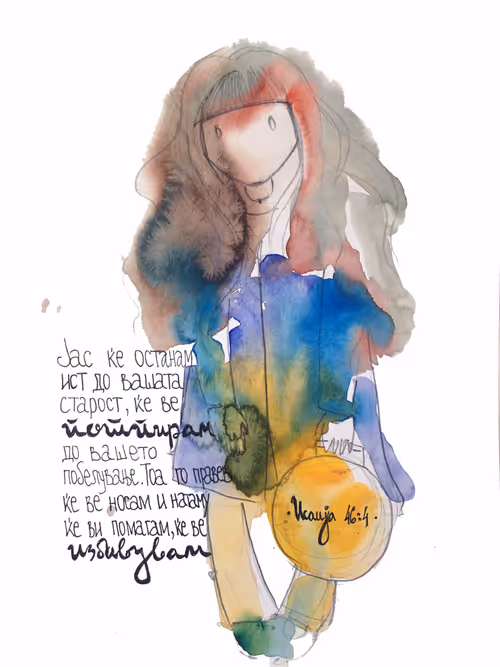 Јас ќе останам
ист до вашата
старост, ќе ве
потпирам
до вашето
побелување. Тоа го правев
ќе ве носам и натаму
ќе ви помагам, ќе ве
избавувам
· Исаија 46:4 ·